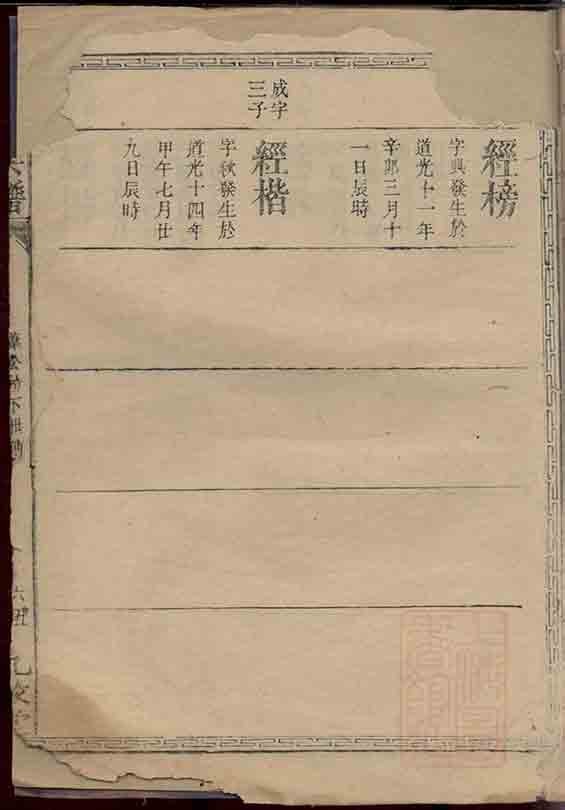 經榜
字典發生於
道光十一年
辛卯三月十
一日辰時
成字
三子
經楷
字秋發生於
道光十四年
甲午七月廿
九日辰時
譜